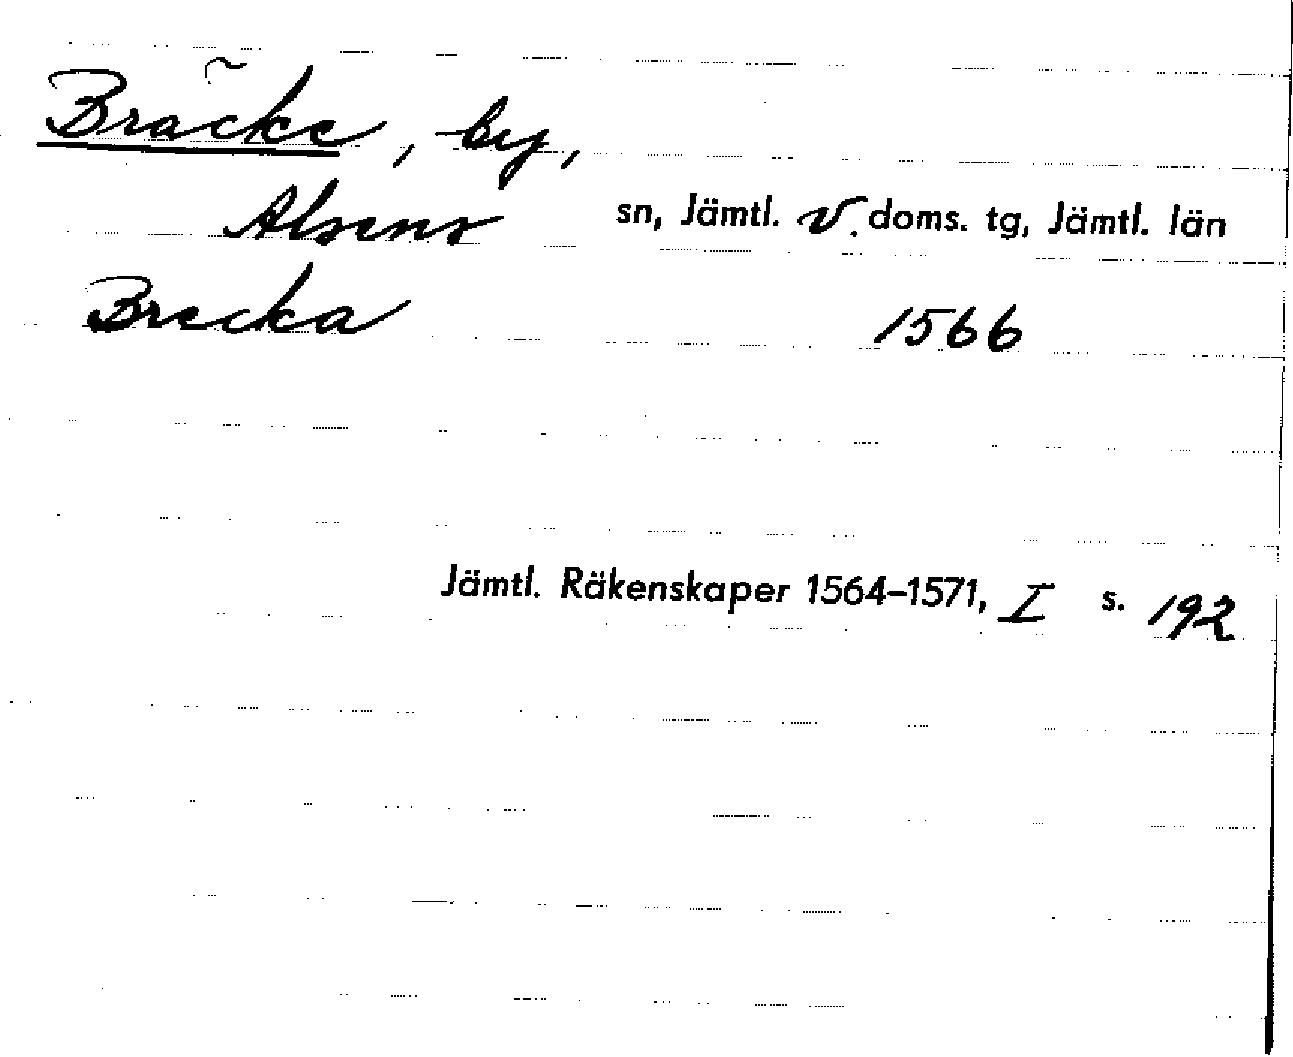 Bräcke, by,
Alsens sn, Jämtl. v. doms. tg, Jämtl. län
Brecka 1566
Jämtl. Räkenskaper 1564-1571, I s. 192